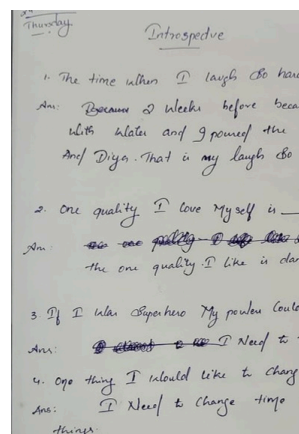 Thursday
Introspedve
1. The time when I laugh So hard
Ans: Because 2 weeks before beca
with water and I poured the
And Diya. That is my laugh So
2. One quality I love Myself is
Ans:
the one quality. I like is dan
3. If I was Superhero My power Coul
Ans: I Need to
4. One thing I would like to Chang
Ans: I Need to Change time
things.